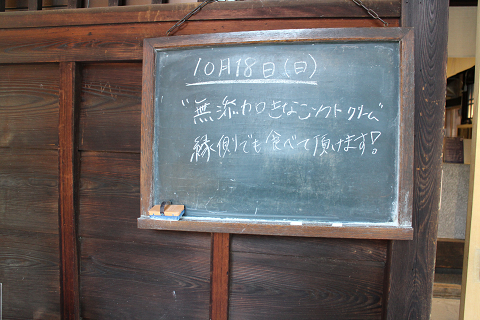 10月18日(日)
"無添加きなこソフトクリーム"
縁側でも食べて頂けます!